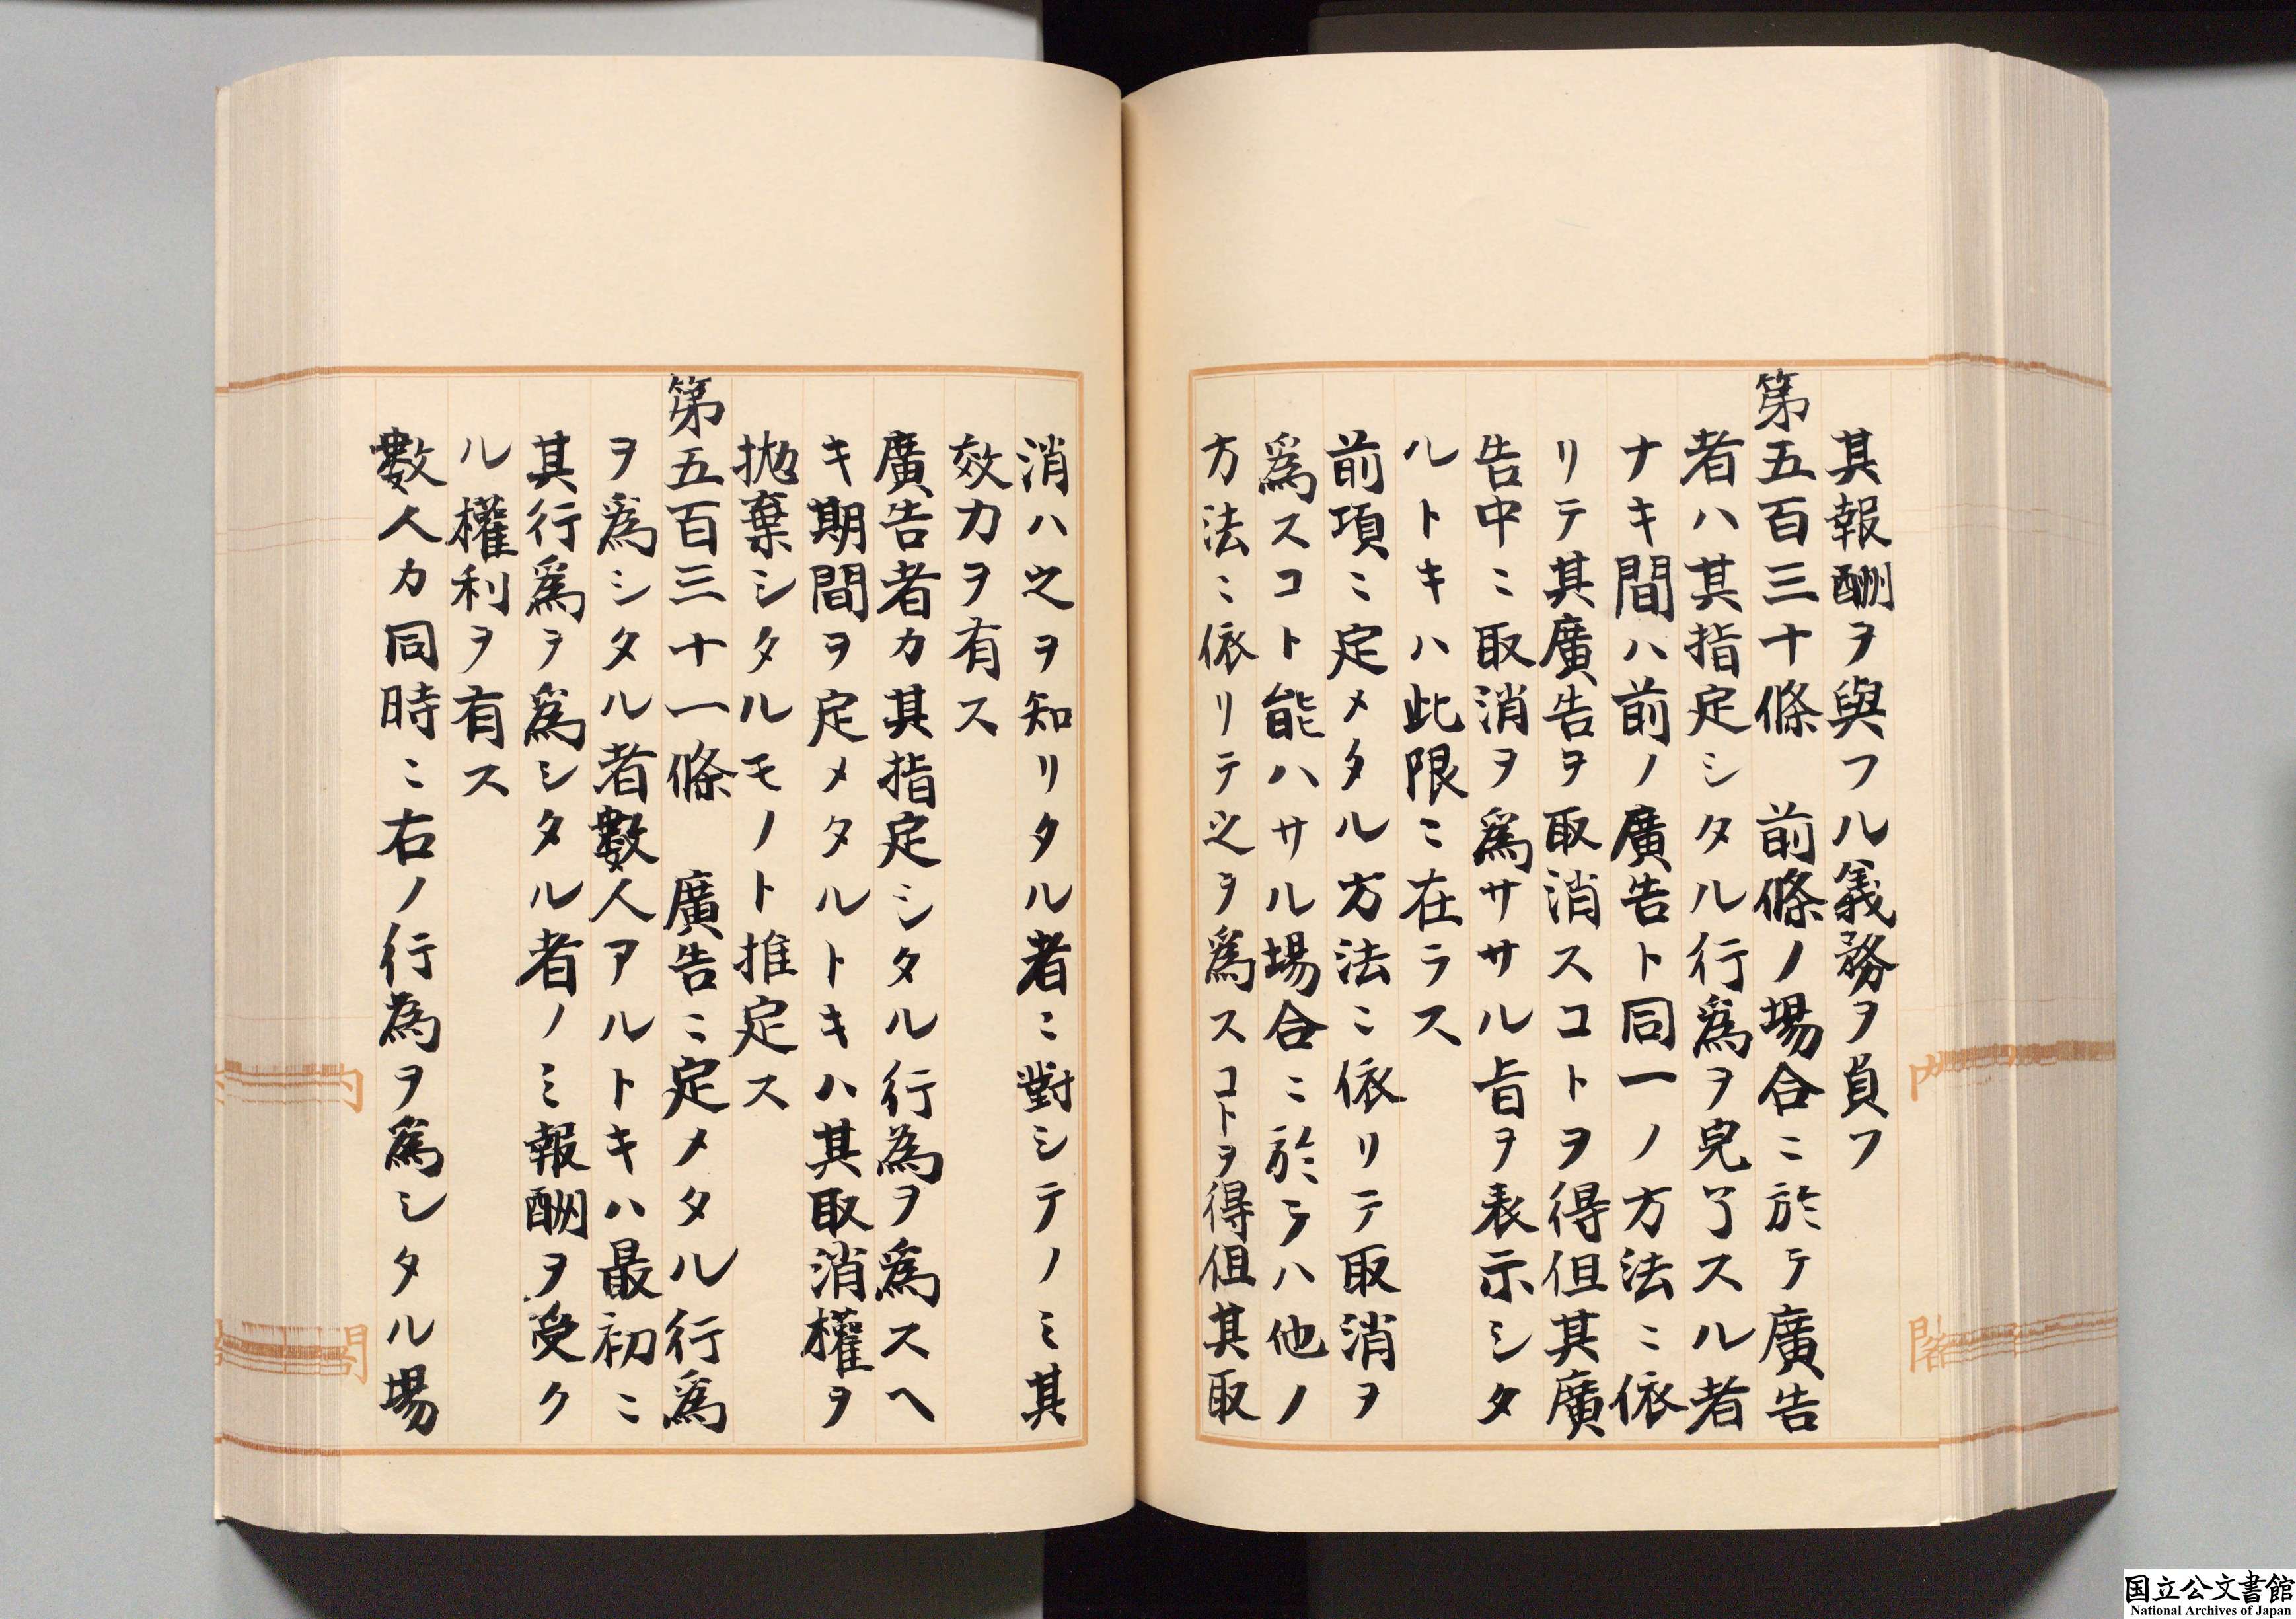 其報酬ヲ與フル義務ヲ負フ
第五百三十條　前條ノ場合ニ於テ廣告
者ハ其指定シタル行爲ヲ完了スル者
ナキ間ハ前ノ廣告ト同一ノ方法ニ依
リテ其廣告ヲ取消スコトヲ得但其廣
告中ニ取消ヲ爲ササル旨ヲ表示シタ
ルトキハ此限ニ在ラス
前項ニ定メタル方法ニ依リテ取消ヲ
爲スコト能ハサル場合ニ於テハ他ノ
方法ニ依リテ之ヲ爲スコトヲ得但其取
消ハ之ヲ知リタル者ニ對シテノミ其
效力ヲ有ス
廣告者カ其指定シタル行為ヲ爲スヘ
キ期間ヲ定メタルトキハ其取消權ヲ
抛棄シタルモノト推定ス
第五百三十一條　廣告ニ定メタル行爲
ヲ爲シタル者數人アルトキハ最初ニ
其行爲ヲ爲シタル者ノミ報酬ヲ受ク
ル權利ヲ有ス
數人カ同時ニ右ノ行為ヲ爲シタル場
内
閣
国立公文書館
National Archives of Japan